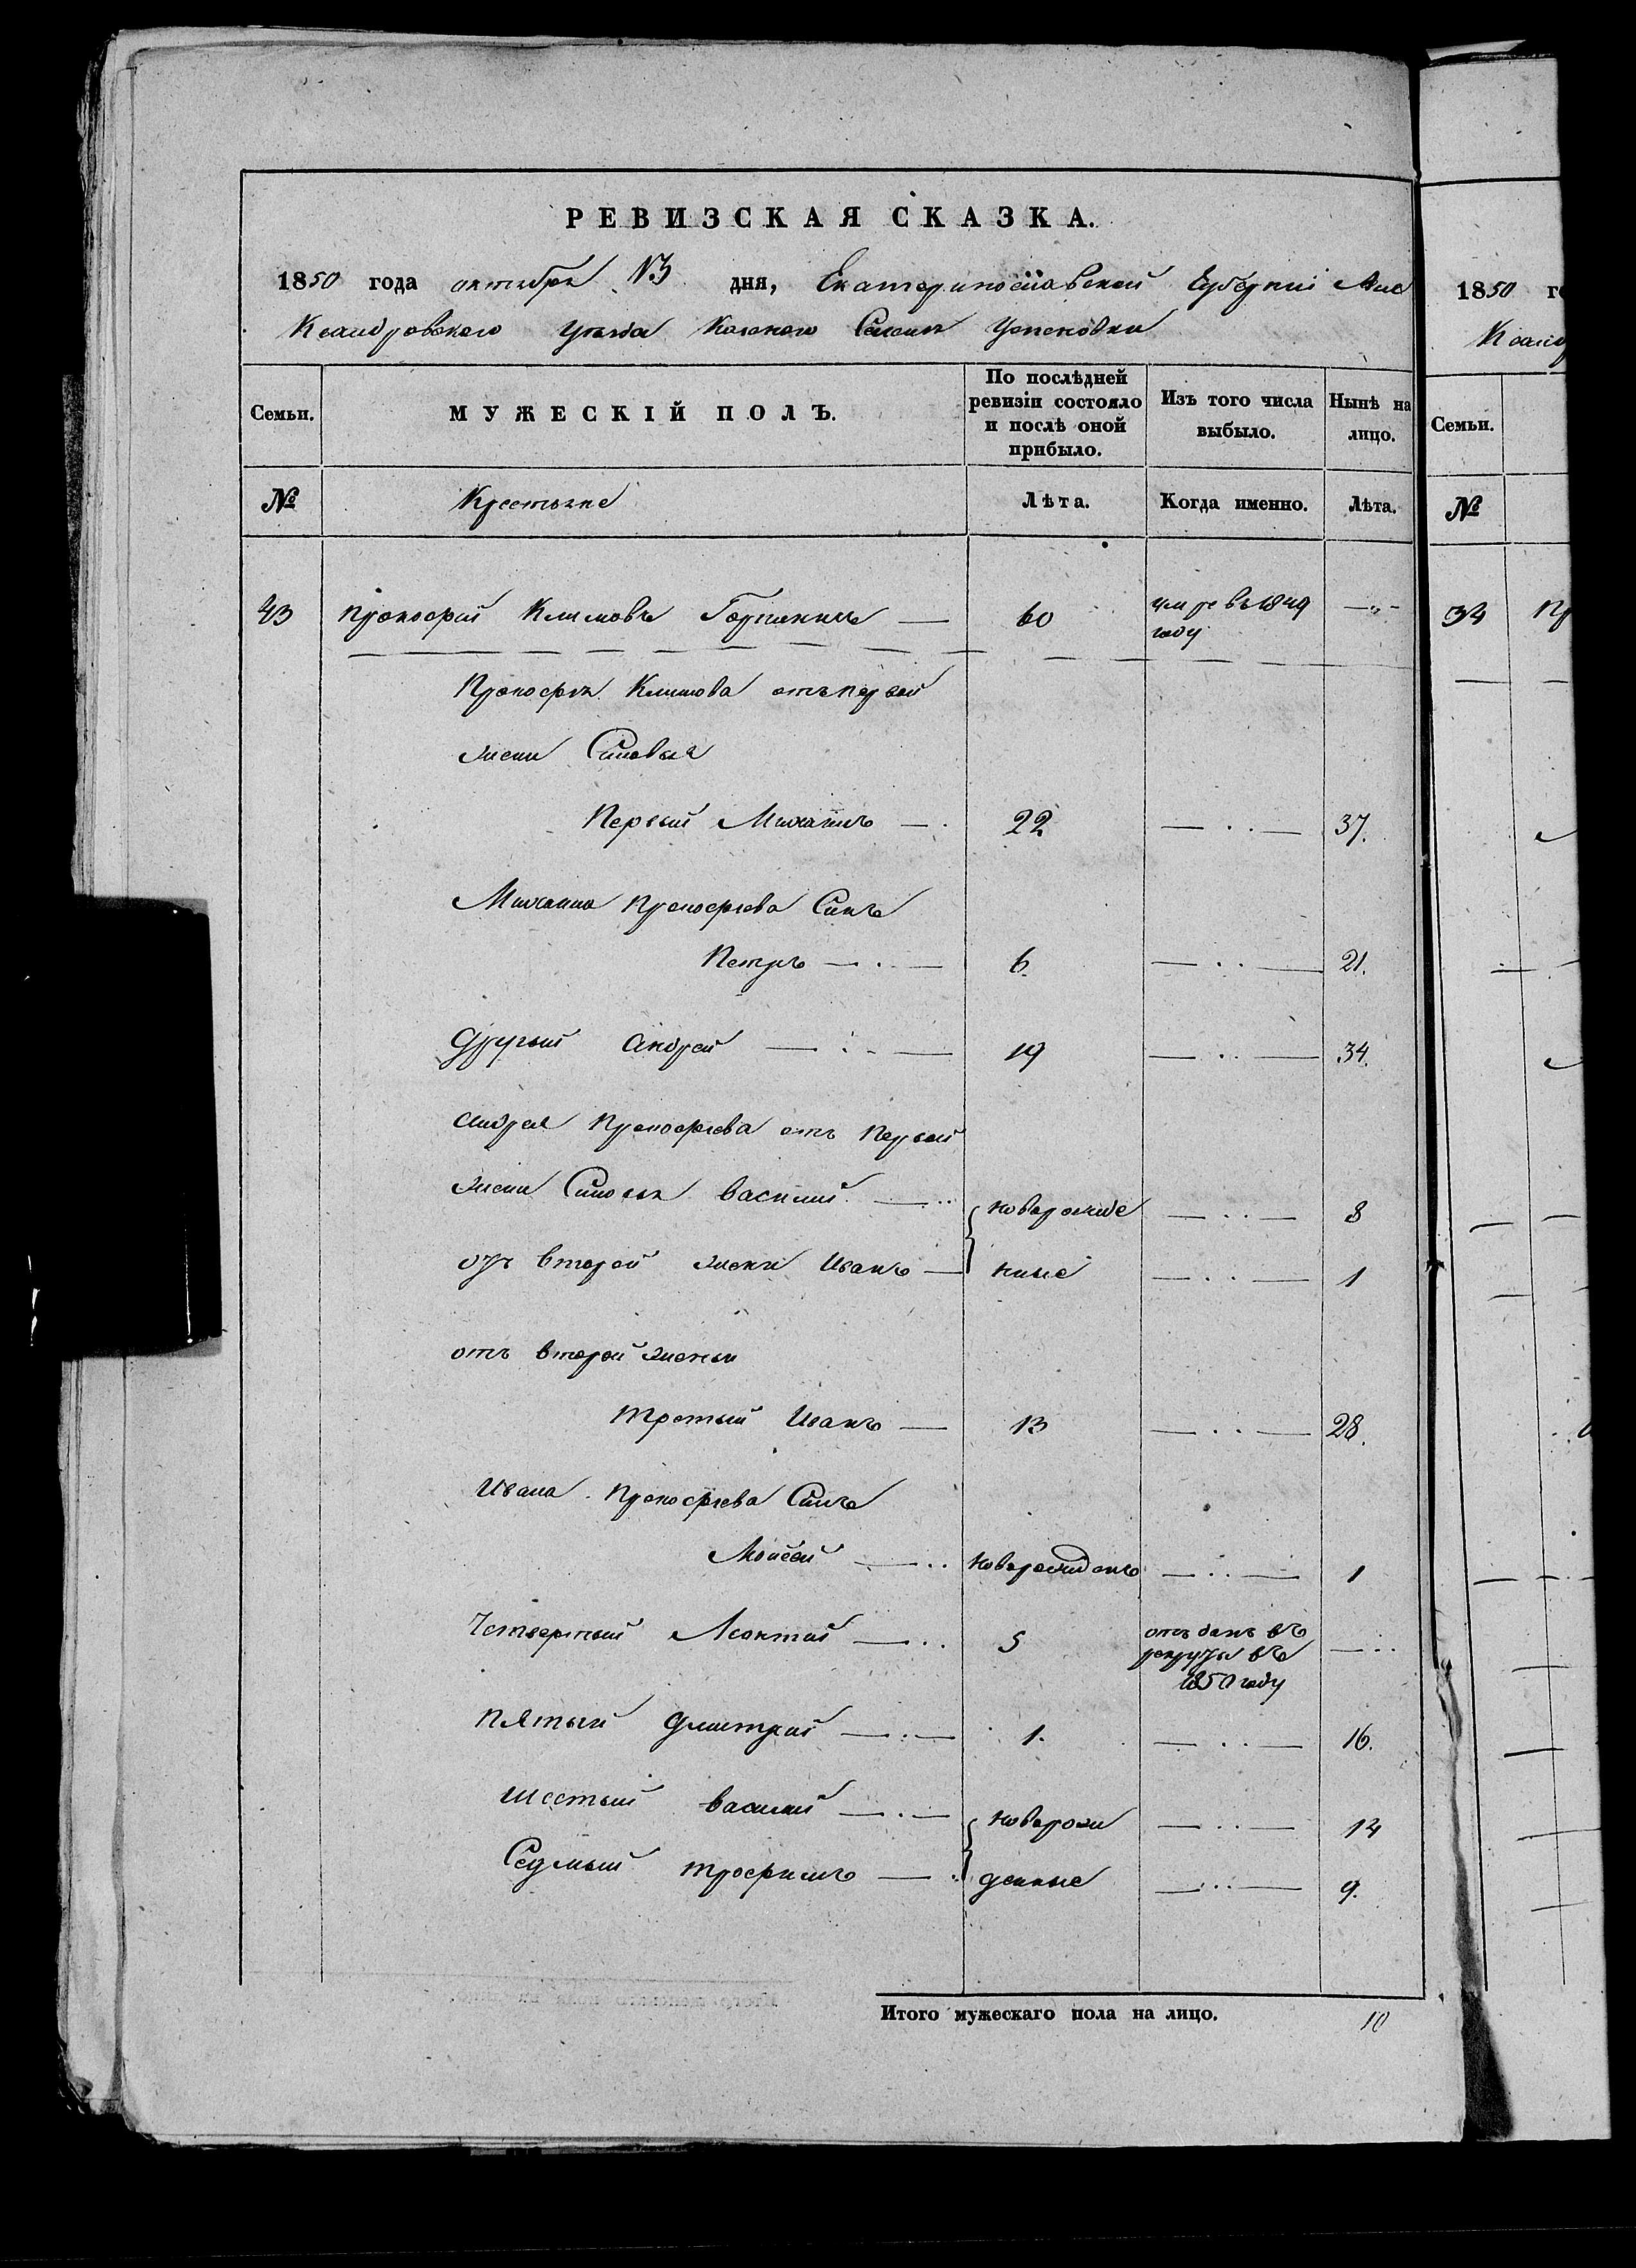 РЕВИЗСКАЯ СКАЗКА.
1850 года октября 13 дня, Екатеринославской Губерніи Але
Ксандровского уѣзда Казеного Селенія Успеновки
Семьи. МУЖЕСКІЙ ПОЛЪ. По послѣдней ревизіи состояло и послѣ оной прибыло. Изъ того числа выбыло. Нынѣ на лицо.
№ Крестьяне Лѣта. Когда именно. Лѣта.
43 Прокофій Климовъ 60 умре въ 1849 году — " —
Прокофія Климова отъ первой
жены Сыновья
Первый Михаилъ — 22 — 37.
Михаила Прокофьева Сынъ
Петръ — 6 — 21.
Другый Андрей — 19 — 34.
Андрея Прокофьева отъ Первой
жены Сыновья Василий — новорожде — 8
отъ второй жены Иванъ — нные — 1
отъ второй жены
Третый Иванъ — 13 — 28.
Ивана Прокофьева Сынъ
Мойсей — новорожденъ — 1
Четвертый Леонтий — 5 отъданъ въ рекруты въ 1850 году —
Пятый Дмитрий — 1. — 16.
Шестый Василий — новорож — 14
Седмый Трофимъ — денные — 9.
Итого мужескаго пола на лицо. 10
1850 го
Ксанд
Семьи.
№
34 Пр